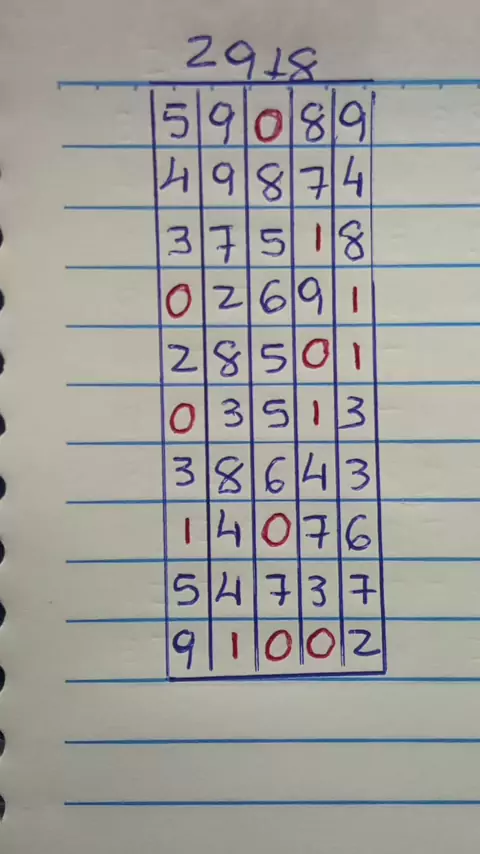 2918
5 9 0 8 9
4 9 8 7 4
3 7 5 1 8
0 2 6 9 1
2 8 5 0 1
0 3 5 1 3
3 8 6 4 3
1 4 0 7 6
5 4 7 3 7
9 1 0 0 2